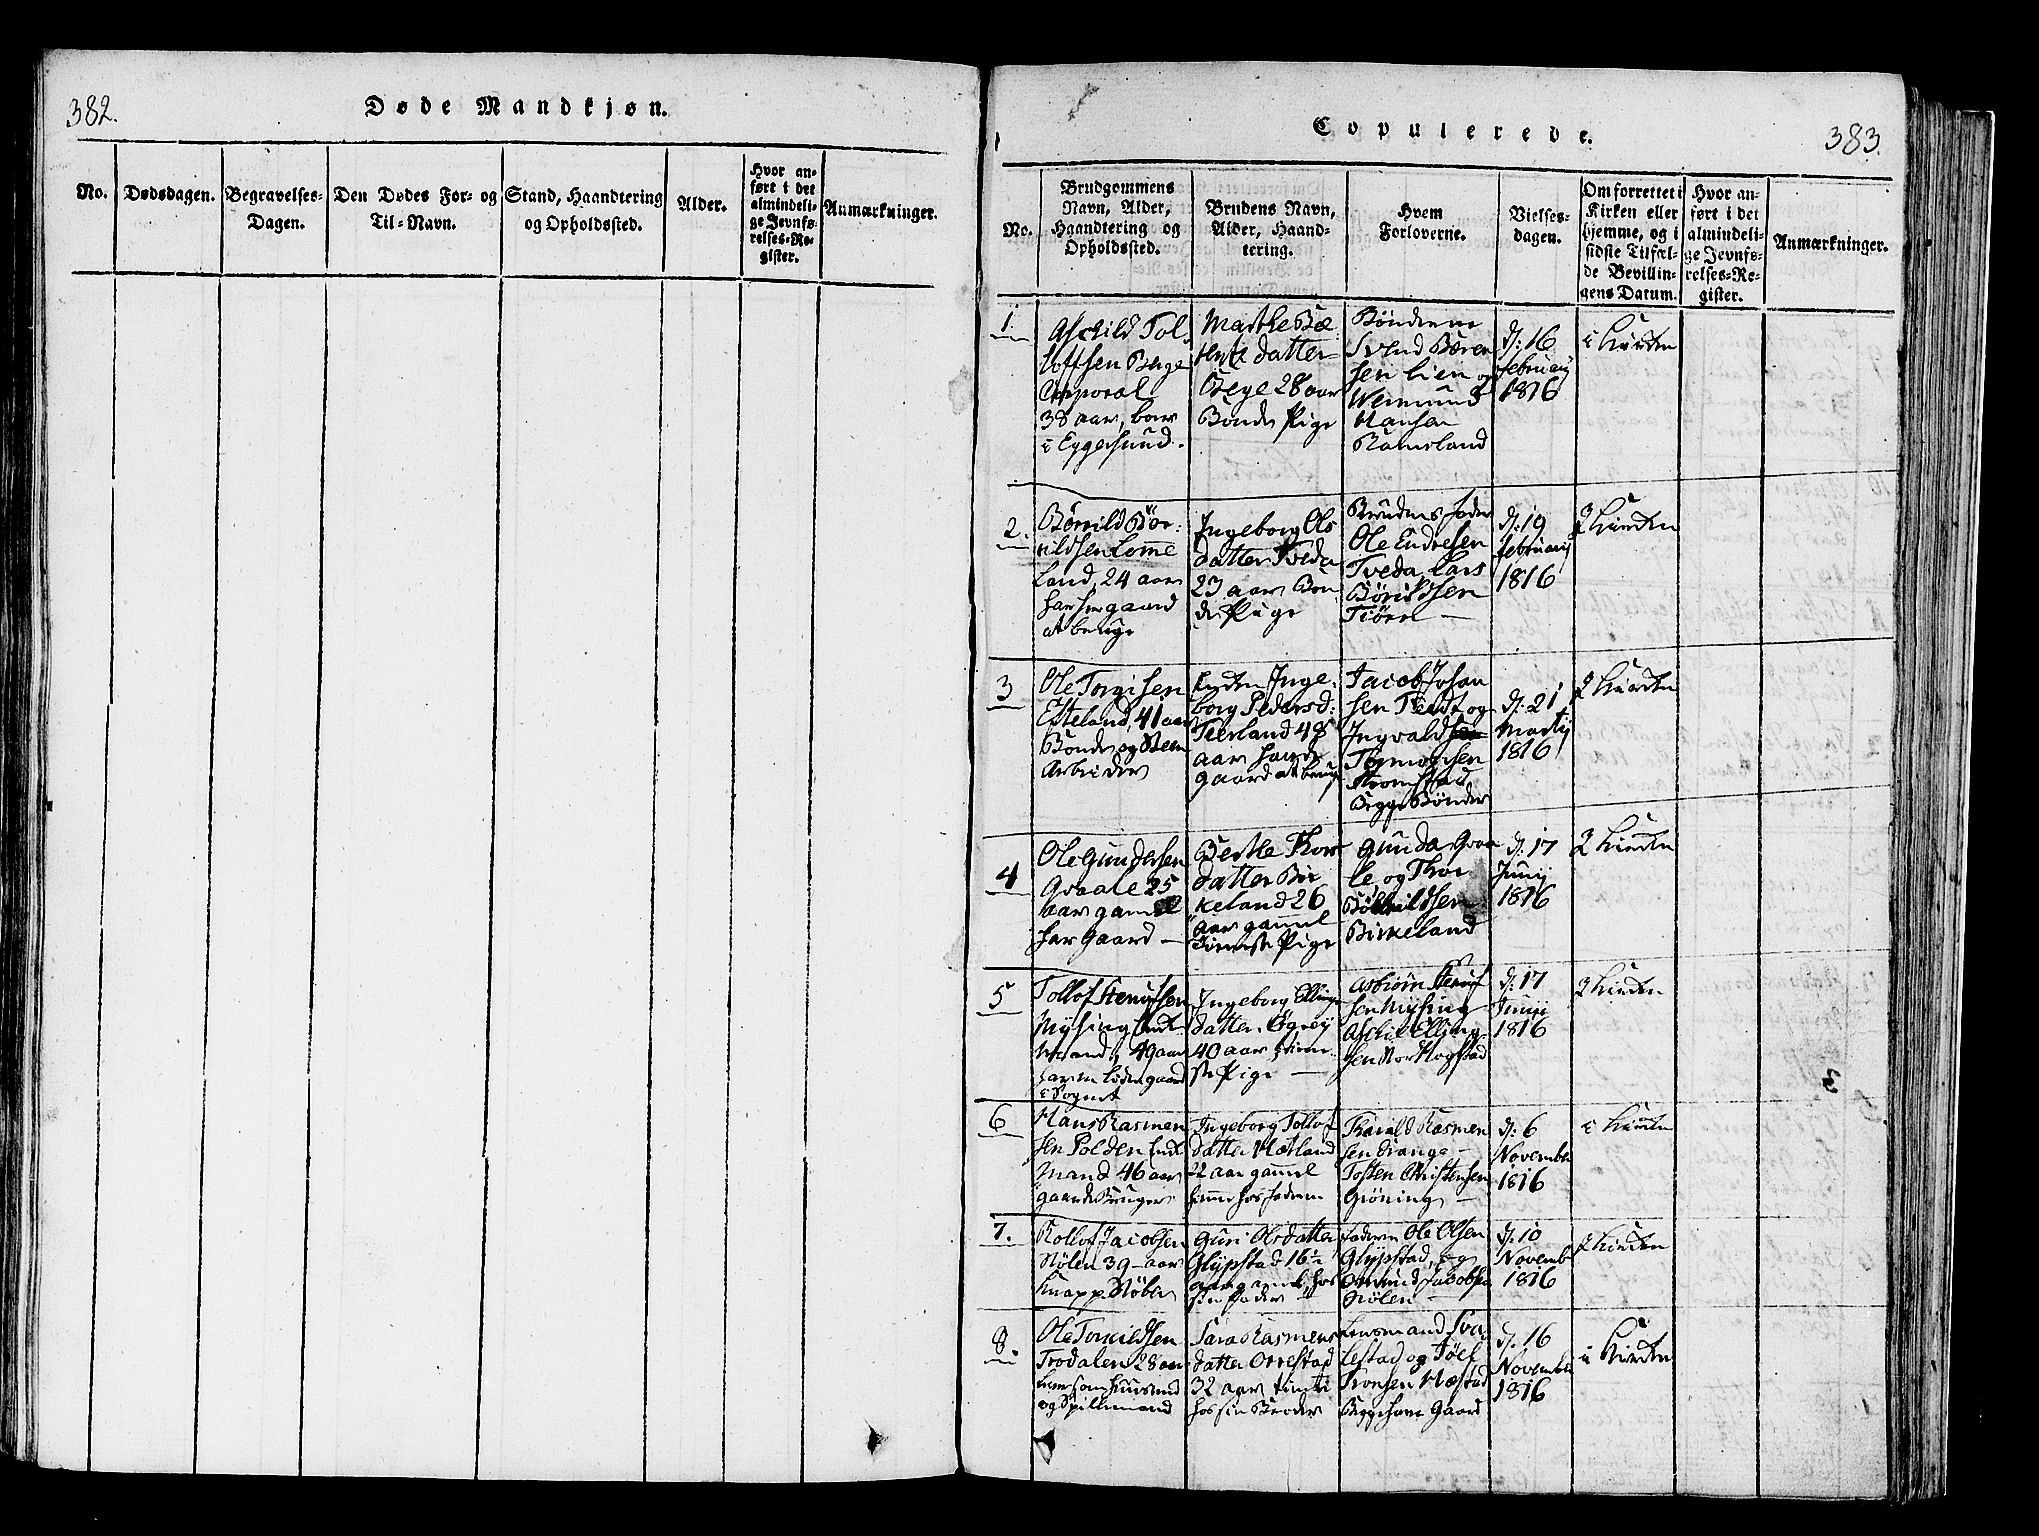 382.
Døde Mandkjøn.
No.
Dødsdagen.
Begravelses-
Dagen.
Den Dødes For- og
Til-Navn.
Stand, Haandtering
og Opholdssted.
Alder.
Hvor an-
ført i det
almindeli-
ge Jevnfø-
relses-Re-
gister.
Anmærkninger.
Copulerede.
383.
No.
Brudgommens
Navn, Alder,
Haandtering og
Opholdssted.
Brudens Navn,
Alder, Haand-
tering.
Hvem
Forloverne.
Vielses-
dagen.
Om forrettet i
Kirken eller
hjemme, og i
sidste Tilfæl-
de Bevillin-
gens Datum.
Hvor an-
ført i det
almindeli-
ge Jevnfø-
relses-Re-
gister.
Anmærkninger.
1.
Aschild Tol
loffsen Berge
Corporal
38 aar, boer
i Eggersund.
Marthe
datter
Bege 28 aar
Bonde Pige
Bønderne
Svend Børen
sen Lien og
Wermund
Hansen
Ramsland
d: 16
februarij
1816
i Kirken
2.
Børrild Bør:
rildsen Lomme
land, 24 aar
har sin gaard
at bruge
Ingeborg Ols
datter Tveda
23 aar Bon
de Pige
Brudens fader
Ole Endresen
Tveda, Lars
Børrildsen
Tiørn —
d: 19
februarij
1816
I Kirken
3
Ole Torgisen
Eseland, 41 aar
Bonde og Steen
Arbeider
Enken Inge:
borg Pedersd:
Tierland 48
aar har en
gaard at bruge
Jacob Johan
sen Tvedt og
Ingvald
Tormodsen
Stromstad
Begge Bønder
d: 21
Martij
1816
I Kirken
4
Ole Gundersen
Gvaale 25
aar gammel
har Gaard —
Berthe Thors
datter Bir
keland 26
aar gammel
tieneste Pige
Gunda Gvaa
le og Thor
Børrildsen
Birkeland
d: 17
Junij
1816
I Kirken
5
Tollof Stenufsen
Mysing Enke
Mand, 49 aar
har en liden gaard
i Sognet
Ingeborg Ellings
datter Øgrey
40 aar tiene
ste Pige —
Asbiørn Stenuf
sen Mysing
Aschild Elling
sen Nor Hogstad
d: 17
Junij
1816
I Kirken
6
Hans Rasmen
sen Polden Enke
Mand 46 aar
gaards Bruger
Ingeborg Tollof
datter Hætland
22 aar gammel
hiemme hos faderen
Tharald Rasmen
sen Drange —
Tosten Christensen
Grøning —
d: 6
November
1816
i Kirken
7.
Rollof Jacobsen
Nølen 39 aar
Knapp. Støber
Guri Olsdatter
Glypstad 16½
aar gamel hos
sin Fader
Faderen Ole Olsen
Glypstad, og
Omund Jacobsen
Nølen —
d: 10
Novemb
1816
I Kirken
8.
Ole Torkildsen
Trodalen 28 aar
lever som huusmand
og Spillemand
Sara Rasmens
datter Orrestad
32 aar tienti
hos sin Broder
Lensmand Sva
lestad og Joel
Tronsen Mæstad
Begge have Gaard
d: 16
November
1816
i Kirken